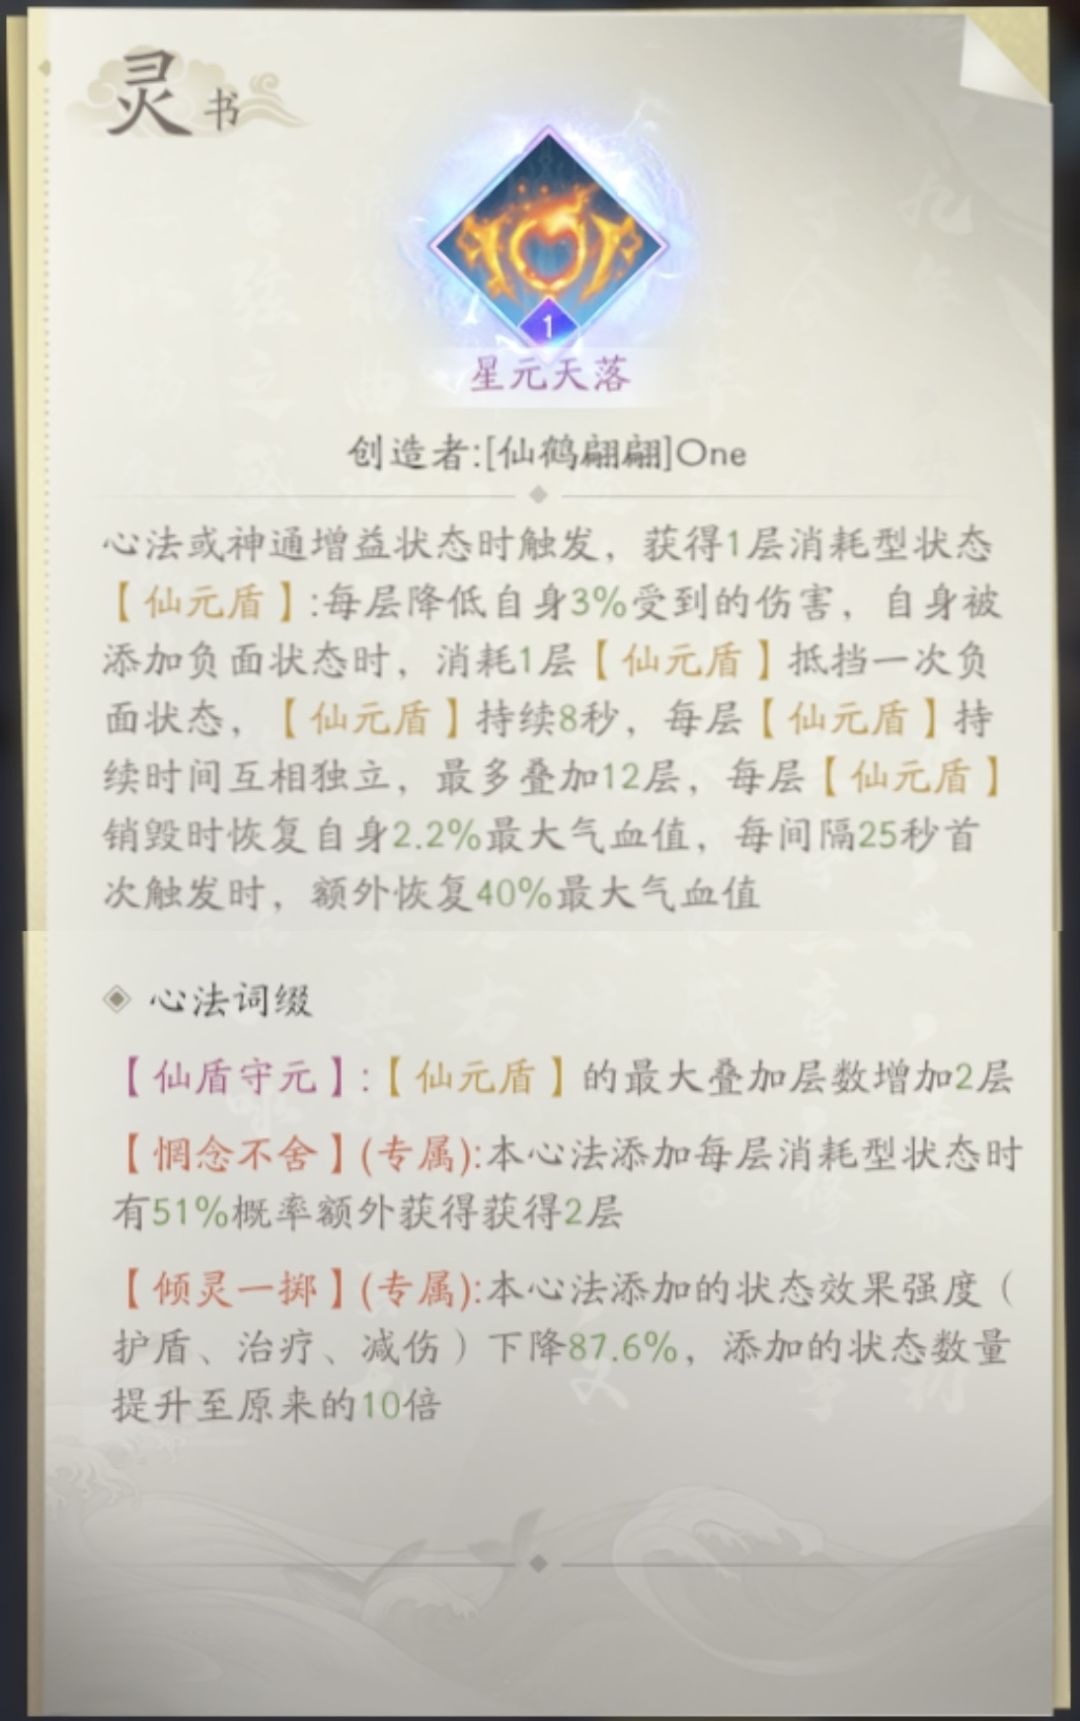 灵书
1
星元天落
创造者:[仙鹤翩翩]One
心法或神通增益状态时触发，获得1层消耗型状态
【仙元盾】:每层降低自身3%受到的伤害，自身被
添加负面状态时，消耗1层【仙元盾】抵挡一次负
面状态，【仙元盾】持续8秒，每层【仙元盾】持
续时间互相独立，最多叠加12层，每层【仙元盾】
销毁时恢复自身2.2%最大气血值，每间隔25秒首
次触发时，额外恢复40%最大气血值
心法词缀
【仙盾守元】:【仙元盾】的最大叠加层数增加2层
【惘念不舍】(专属):本心法添加每层消耗型状态时
有51%概率额外获得获得2层
【倾灵一掷】(专属):本心法添加的状态效果强度（
护盾、治疗、减伤）下降87.6%，添加的状态数量
提升至原来的10倍